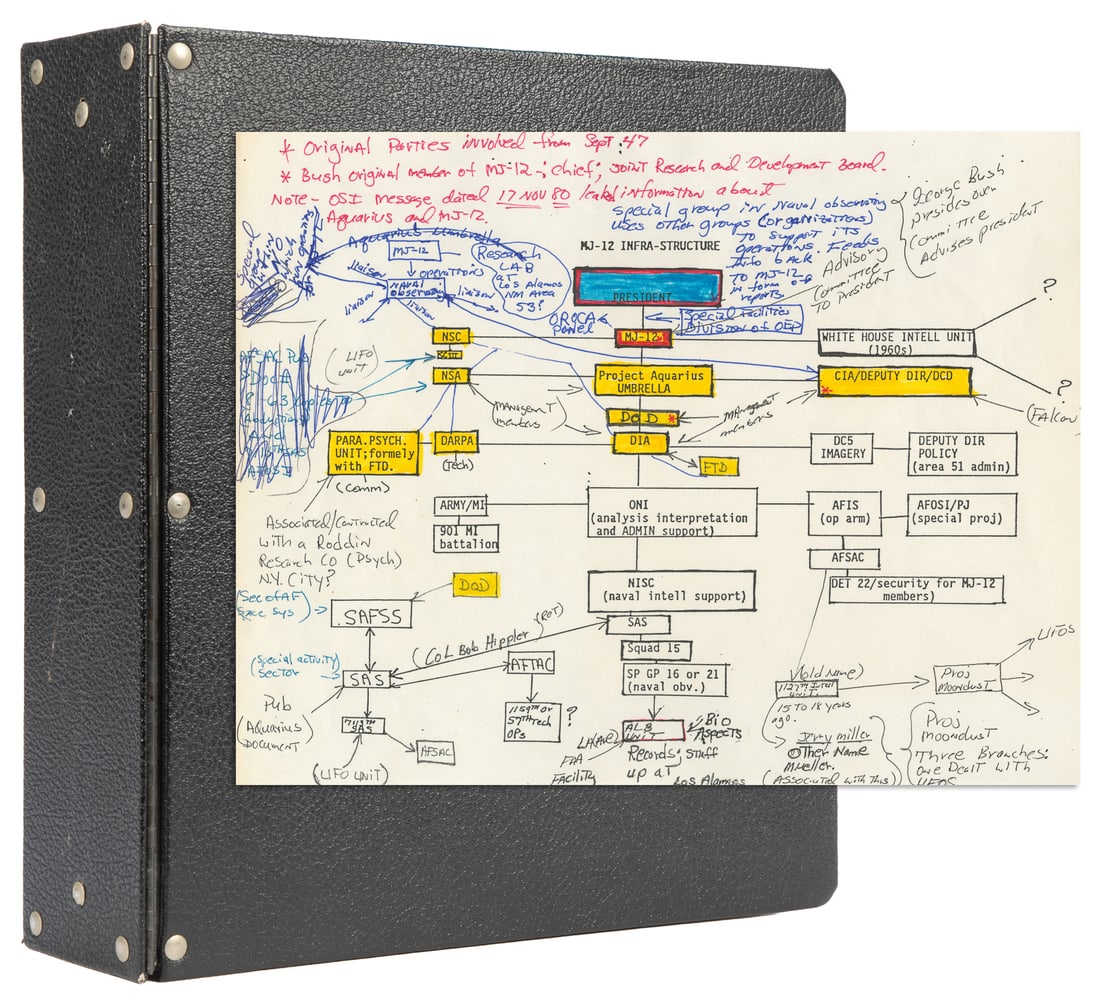 * Original Parties involved from Sept '47
* Bush original member of MJ-12 - ; chief; Joint Research and Development Board.
Note - OSI message dated 17 NOV 80 leaked information about
Aquarius and MJ-12.
Special group in Naval observatory
uses other groups (organizations)
to support its
operations. Feeds
info back
to MJ-12
in form of
reports
George Bush
presides over
committee
Advises president
Advisory
Committee
to President
Aquarius Umbrella
MJ-12
operations
NAVAL
observatory
liaison
liaison
liaison
liaison
Research
LAB
at
Los Alamos
NM Area
53?
MJ-12 INFRA-STRUCTURE
PRESIDENT
OROCA
Panel
Special facilities
Division of OEP
NSC
MJ-12
WHITE HOUSE INTELL UNIT
(1960s)
?
(UFO
unit)
NSA
Project Aquarius
UMBRELLA
CIA/DEPUTY DIR/DCD
*
?
(Falcon)
(Management
members)
DOD *
Management
members
PARA.PSYCH.
UNIT;formely
with FTD.
(Comm)
DARPA
(tech)
DIA
FTD
DC5
IMAGERY
DEPUTY DIR
POLICY
(area 51 admin)
ARMY/MI
901 MI
battalion
ONI
(analysis interpretation
and ADMIN support)
AFIS
(op arm)
AFOSI/PJ
(special proj)
AFSAC
DET 22/security for MJ-12
members)
Associated/Contracted
with a Roddin
Research Co (Psych)
N.Y. City?
NISC
(naval intell support)
DOD
(Sec of AF
Spec Sys)
SAFSS
SAS
Squad 15
SP GP 16 or 21
(naval obv.)
(Col Bob Hippler (Ret)
(Special activity)
Sector
SAS
AFTAC
1159th or
57th tech
OPs
?
Pub
(Aquarius
Document)
SAS
AFSAC
(UFO unit)
ALB
UNIT
Bio
Aspects
Records; stuff
up at
Los Alamos
Facility
(old name)
15 to 18 years
ago.
Jerry Miller
Other Name
Mueller.
(Associated with this)
Proj
Moondust
UFOs
Proj
Moondust
Three Branches:
one Dealt with
UFOs